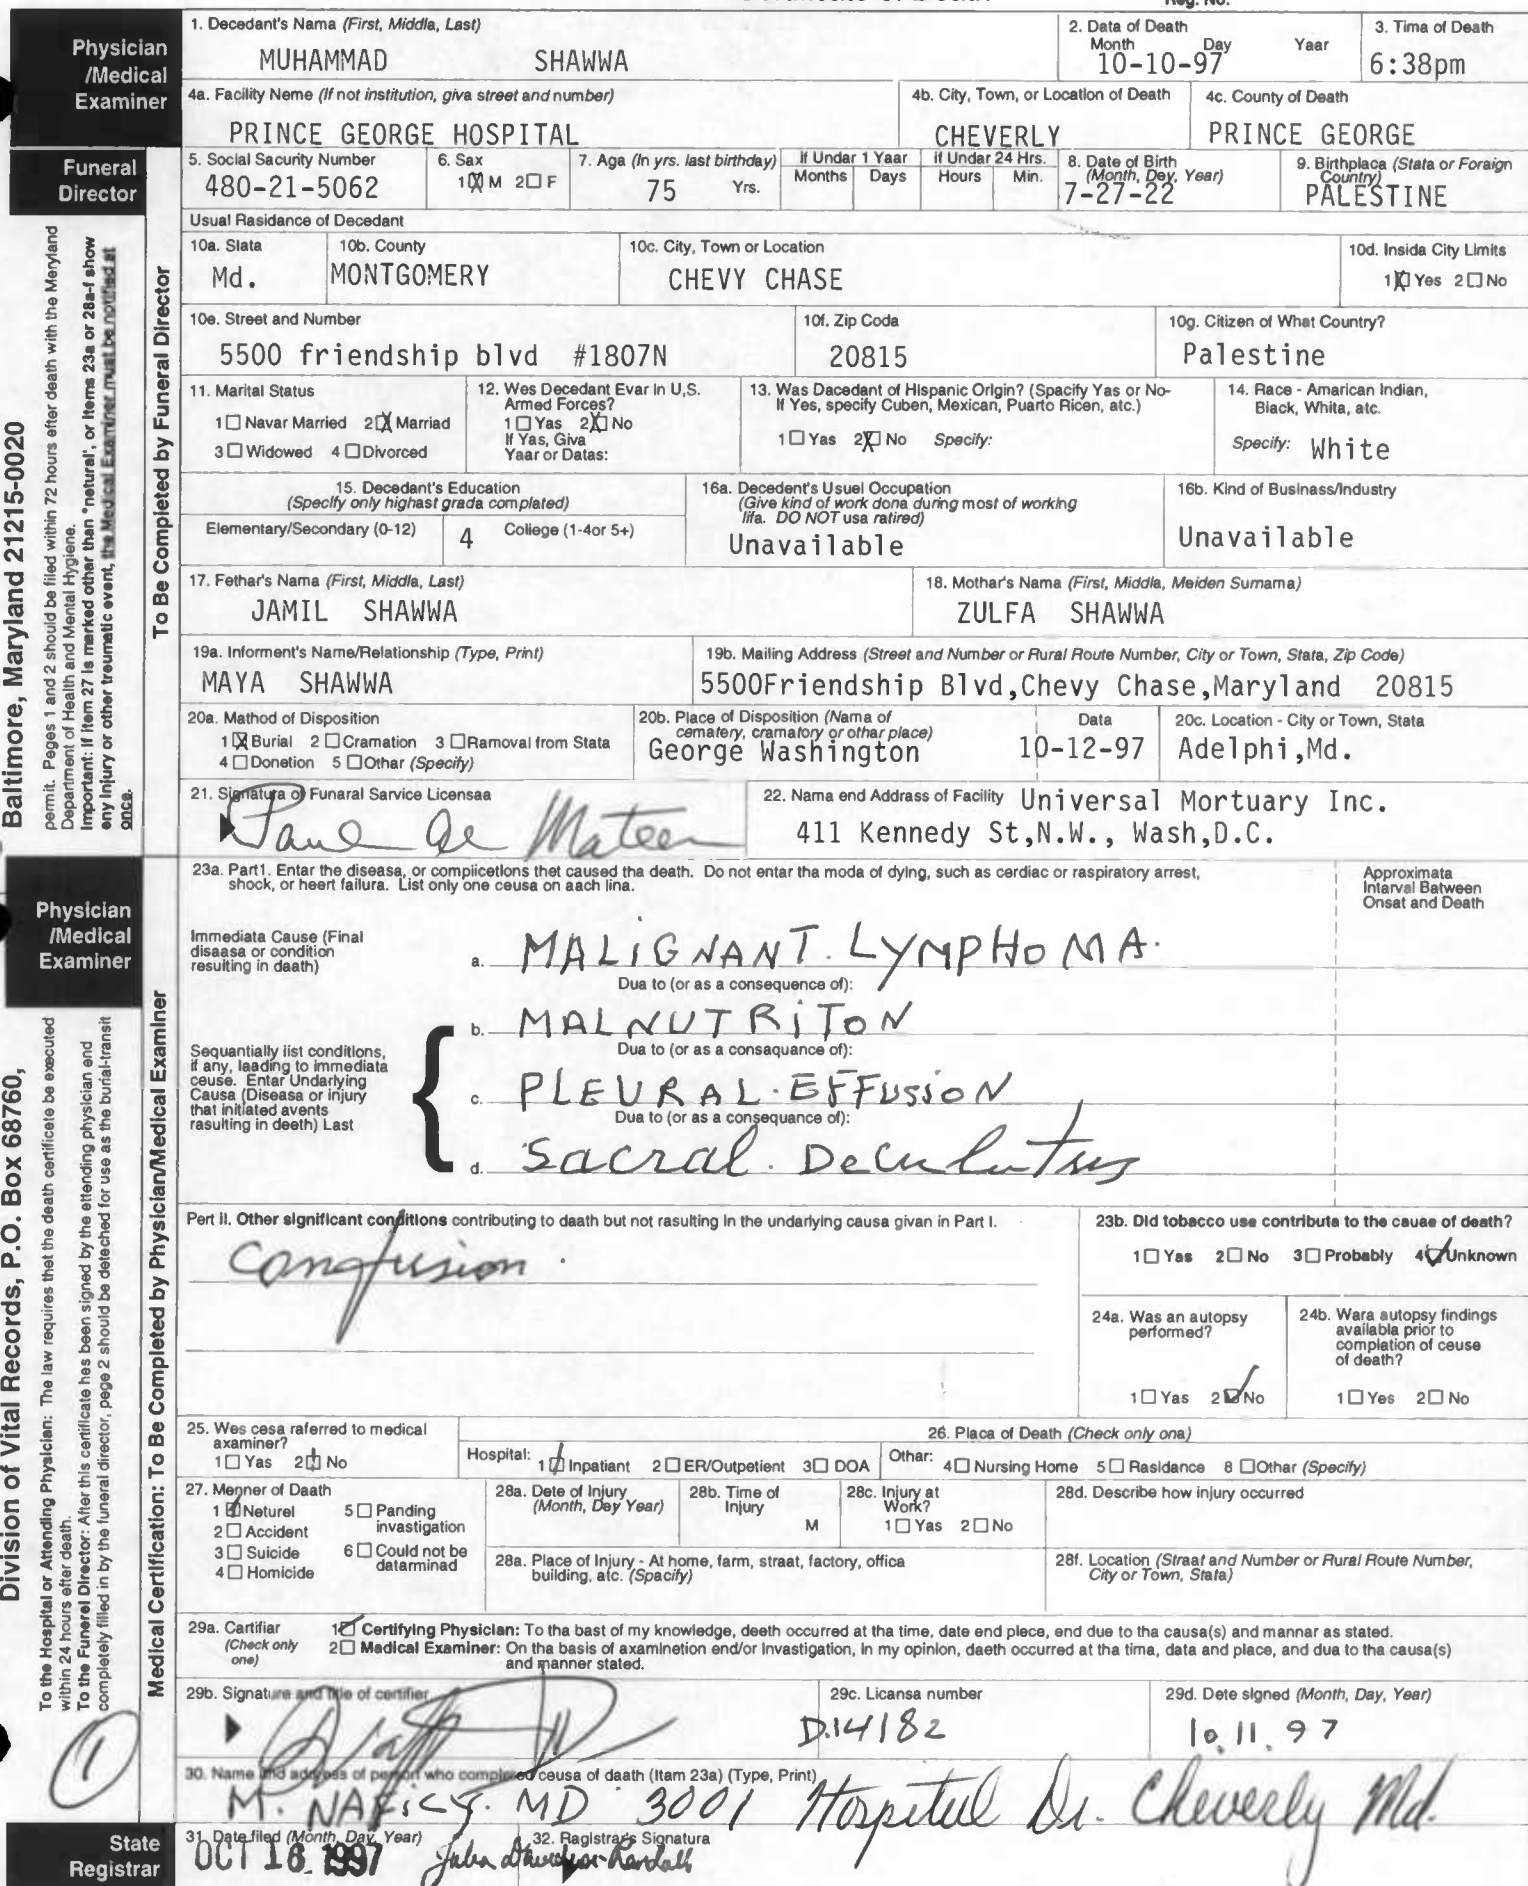 Physician
/Medical
Examiner
1. Decedant's Name (First, Middle, Last)
MUHAMMAD SHAWWA
2. Data of Death
Month Day Yaar
10-10-97
3. Tima of Death
6:38pm
4a. Facility Name (If not institution, giva street and number)
PRINCE GEORGE HOSPITAL
4b. City, Town, or Location of Death
CHEVERLY
4c. County of Death
PRINCE GEORGE
Funeral
Director
5. Social Sacurity Number
480-21-5062
6. Sax
1 M 2 F
7. Aga (In yrs. last birthday)
75 Yrs.
If Under 1 Yaar
Months Days
If Under 24 Hrs.
Hours Min.
8. Date of Birth
(Month, Dey, Year)
7-27-22
9. Birthplaca (Stata or Foraign
Country)
PALESTINE
Usual Rasidance of Decedant
10a. Slata
Md.
10b. County
MONTGOMERY
10c. City, Town or Location
CHEVY CHASE
10d. Insida City Limits
1 Yes 2 No
10e. Street and Number
5500 friendship blvd #1807N
10f. Zip Coda
20815
10g. Citizen of What Country?
Palestine
11. Marital Status
1 Navar Married 2 Marriad
3 Widowed 4 Divorced
12. Wes Decedant Evar in U,S.
Armed Forces?
1 Yas 2 No
If Yas, Giva
Yaar or Datas:
13. Was Dacedant of Hispanic Origin? (Specify Yas or No-
If Yes, specify Cuben, Mexican, Puarto Ricen, atc.)
1 Yas 2 No Specify:
14. Race - Amarican Indian,
Biack, Whita, atc.
Specify: White
15. Decedant's Education
(Specify only highast grada complated)
Elementary/Secondary (0-12)
4 College (1-4or 5+)
16a. Decedent's Usuel Occupation
(Give kind of work dona during most of working
lifa. DO NOT usa ratired)
Unavailable
16b. Kind of Businass/Industry
Unavailable
17. Fethar's Nama (First, Middla, Last)
JAMIL SHAWWA
18. Mothar's Nama (First, Middla, Meiden Surnama)
ZULFA SHAWWA
19a. Informent's Name/Relationship (Type, Print)
MAYA SHAWWA
19b. Mailing Address (Street and Number or Rural Route Number, City or Town, Stata, Zip Code)
5500Friendship Blvd,Chevy Chase,Maryland 20815
20a. Mathod of Disposition
1 Burial 2 Cramation 3 Ramoval from Stata
4 Donetion 5 Othar (Specify)
20b. Place of Disposition (Nama of
cematary, cramatory or othar place)
George Washington
Data
10-12-97
20c. Location - City or Town, Stata
Adelphi,Md.
21. Signatura of Funaral Sarvice Licensaa
22. Nama end Addrass of Facility Universal Mortuary Inc.
411 Kennedy St,N.W., Wash,D.C.
To Be Completed by Funeral Director
Baltimore, Maryland 21215-0020
permit. Peges 1 and 2 should be filed within 72 hours efter death with the Meryland
Department of Health and Mental Hygiene.
Important: If item 27 is marked other than "netural", or items 23a or 28a-f show
any Injury or other treumatic event, the Medical Examiner must be notified at
once.
Physician
/Medical
Examiner
23a. Part1. Enter the disaasa, or compiicetions thet caused tha death. Do not entar tha moda of dying, such as cerdiac or raspiratory arrest,
shock, or heert failura. List only one ceusa on aach lina.
Approximata
Intarval Batween
Onsat and Death
Immediata Cause (Final
disaasa or condition
resulting in daath)
a. MALIGNANT. LYMPHOMA.
Dua to (or as a consequence of):
b. MALNUTRITON
Dua to (or as a consaquance of):
Sequantially iist conditions,
if any, laading to immediata
ceuse. Entar Undarlying
Causa (Disaasa or injury
that initiated avents
rasulting in deeth) Last
c. PLEURAL. EFFUSION
Dua to (or as a consequence of):
d. Sacral. Decubutus
Pert II. Other significant conditions contributing to daath but not rasulting in the undarlying causa givan in Part I.
Confusion.
23b. Did tobacco use contributa to the cauae of death?
1 Yas 2 No 3 Probably 4 Unknown
24a. Was an autopsy
performed?
1 Yas 2 No
24b. Wara autopsy findings
availabla prior to
complation of ceuse
of death?
1 Yes 2 No
25. Wes cesa raferred to medical
axaminer?
1 Yas 2 No
26. Placa of Death (Check only ona)
Hospital: 1 Inpatiant 2 ER/Outpetient 3 DOA
Othar: 4 Nursing Home 5 Rasidance 8 Othar (Specify)
27. Menner of Daath
1 Neturel 5 Panding
invastigation
2 Accident
3 Suicide 6 Could not be
datarminad
4 Homicide
28a. Dete of Injury
(Month, Dey Year)
28b. Time of
Injury
M
28c. Injury at
Work?
1 Yas 2 No
28d. Describe how injury occurred
28a. Place of Injury - At home, farm, straat, factory, offica
building, atc. (Spacify)
28f. Location (Straat and Number or Rural Route Number,
City or Town, Stata)
29a. Cartifiar
(Check only
one)
1 Certifying Physician: To tha bast of my knowledge, deeth occurred at tha time, date end plece, end due to tha causa(s) and mannar as stated.
2 Madical Examiner: On tha basis of axaminetion end/or invastigation, in my opinion, daeth occurred at tha tima, data and place, and due to tha causa(s)
and manner stated.
29b. Signature and title of certifier
29c. Licansa number
D.14182
29d. Dete signed (Month, Day, Year)
10.11.97
30. Name and address of person who completed ceusa of daath (Itam 23a) (Type, Print)
M. NAFICY. MD 3001 Hospital Dr. Cheverly Md.
Medical Certification: To Be Completed by Physician/Medical Examiner
Division of Vital Records, P.O. Box 68760,
To the Hospital or Attending Physician: The law requires thet the death certificate be executed
within 24 hours efter death.
To the Funerel Director: After this certificate hes been signed by the ettending physician end
completely filled in by the funeral director, pege 2 should be deteched for use as the burial-transit
1
State
Registrar
31. Date filed (Month, Day, Year)
OCT 16 1997
32. Ragistrar's Signatura